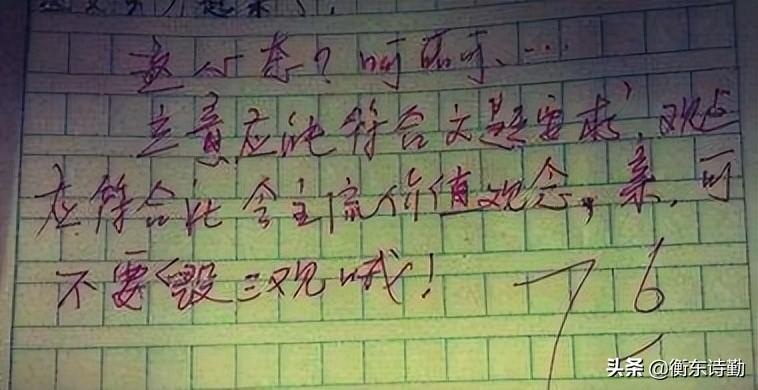 起来
呵呵呵、…
立意应能符合文题要求,观点
应符合社会主流价值观念。亲,可
不要毁三观哦!
76
头条 @衡东诗勤